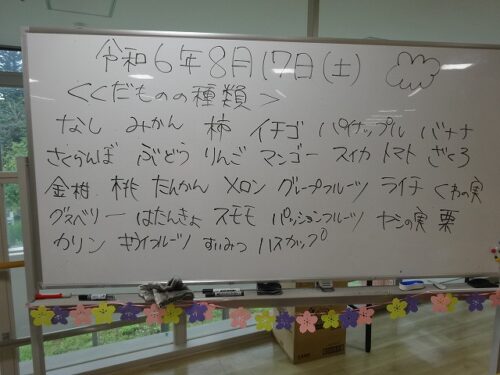 令和6年8月17日(土)
<くだものの種類>
なし みかん 柿 イチゴ パイナップル バナナ
さくらんぼ ぶどう りんご マンゴー スイカ トマト ざくろ
金柑 桃 たんかん メロン グレープフルーツ ライチ くわの実
グズベリー はたんきょ スモモ パッションフルーツ ヤシの実 栗
カリン キウイフルーツ すいみつ ハスカップ